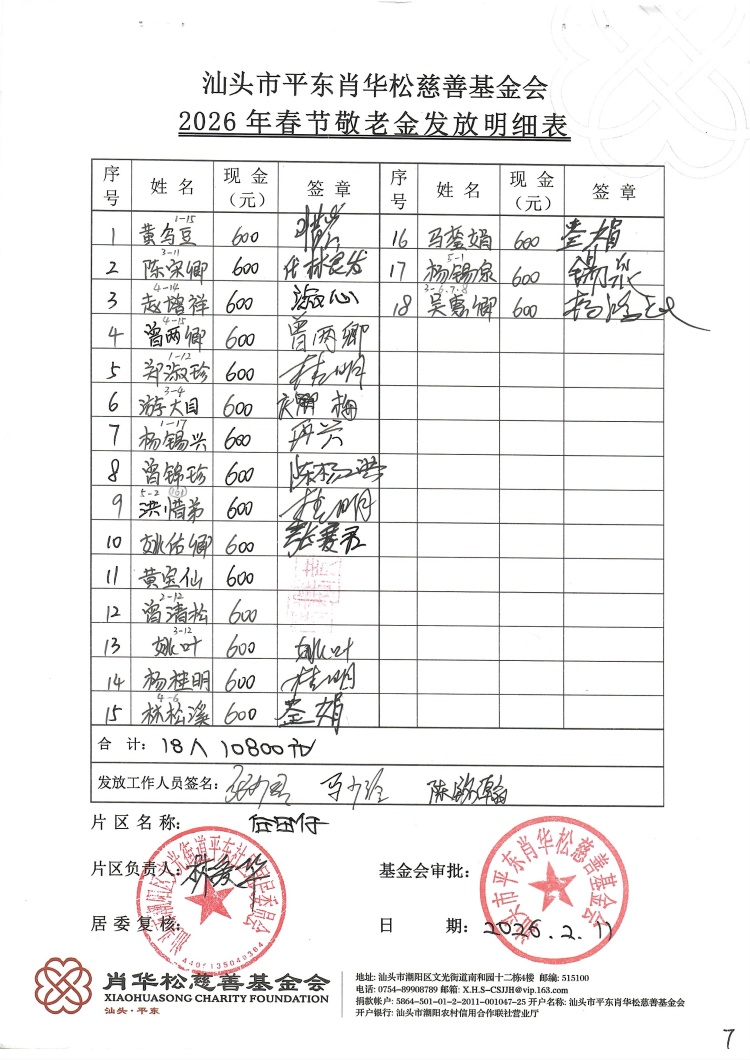 汕头市平东肖华松慈善基金会
2026年春节敬老金发放明细表
序号 姓名 现金（元） 签章 序号 姓名 现金（元） 签章
1-15
1 黄乌豆 600 16 马蓥娟 600 蓥娟
3-11 5-1
2 陈宋卿 600 代林良发 17 杨锡泉 600 锡泉
4-14 3-6.7.8
3 赵增祥 600 淑心 18 吴惠卿 600
4-15
4 曾两卿 600 曾两卿
1-12
5 郑淑珍 600 桂明
3-4
6 游大目 600 梅
1-17
7 杨锡兴 600 再兴
8 曾锦珍 600
5-2
9 洪惜弟 600 桂明
10 姚佑卿 600
11 黄宝仙 600
2-12
12 曾清松 600
3-12
13 姚叶 600 姚叶
14 杨桂明 600 桂明
4-6
15 林松溪 600 蓥娟
合计：18人 10800元
发放工作人员签名：
片区名称：
片区负责人：
基金会审批：
居委复核：
日期：2026.2.11
汕头市平东肖华松慈善基金会
肖华松慈善基金会
XIAOHUASONG CHARITY FOUNDATION
汕头·平东
地址: 汕头市潮阳区文光街道南和园十二栋4楼 邮编: 515100
电话: 0754-89908789 邮箱: X.H.S-CSJJH@vip.163.com
捐款帐户: 5864-501-01-2-2011-001047-25 开户名称: 汕头市平东肖华松慈善基金会
开户银行: 汕头市潮阳农村信用合作联社营业厅
7